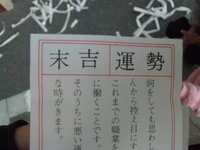 運勢
末吉
何をしても思わし
んから控え目にす
これまでの職業を
に働くことです。
そのうちに悪い運
な時がきます。